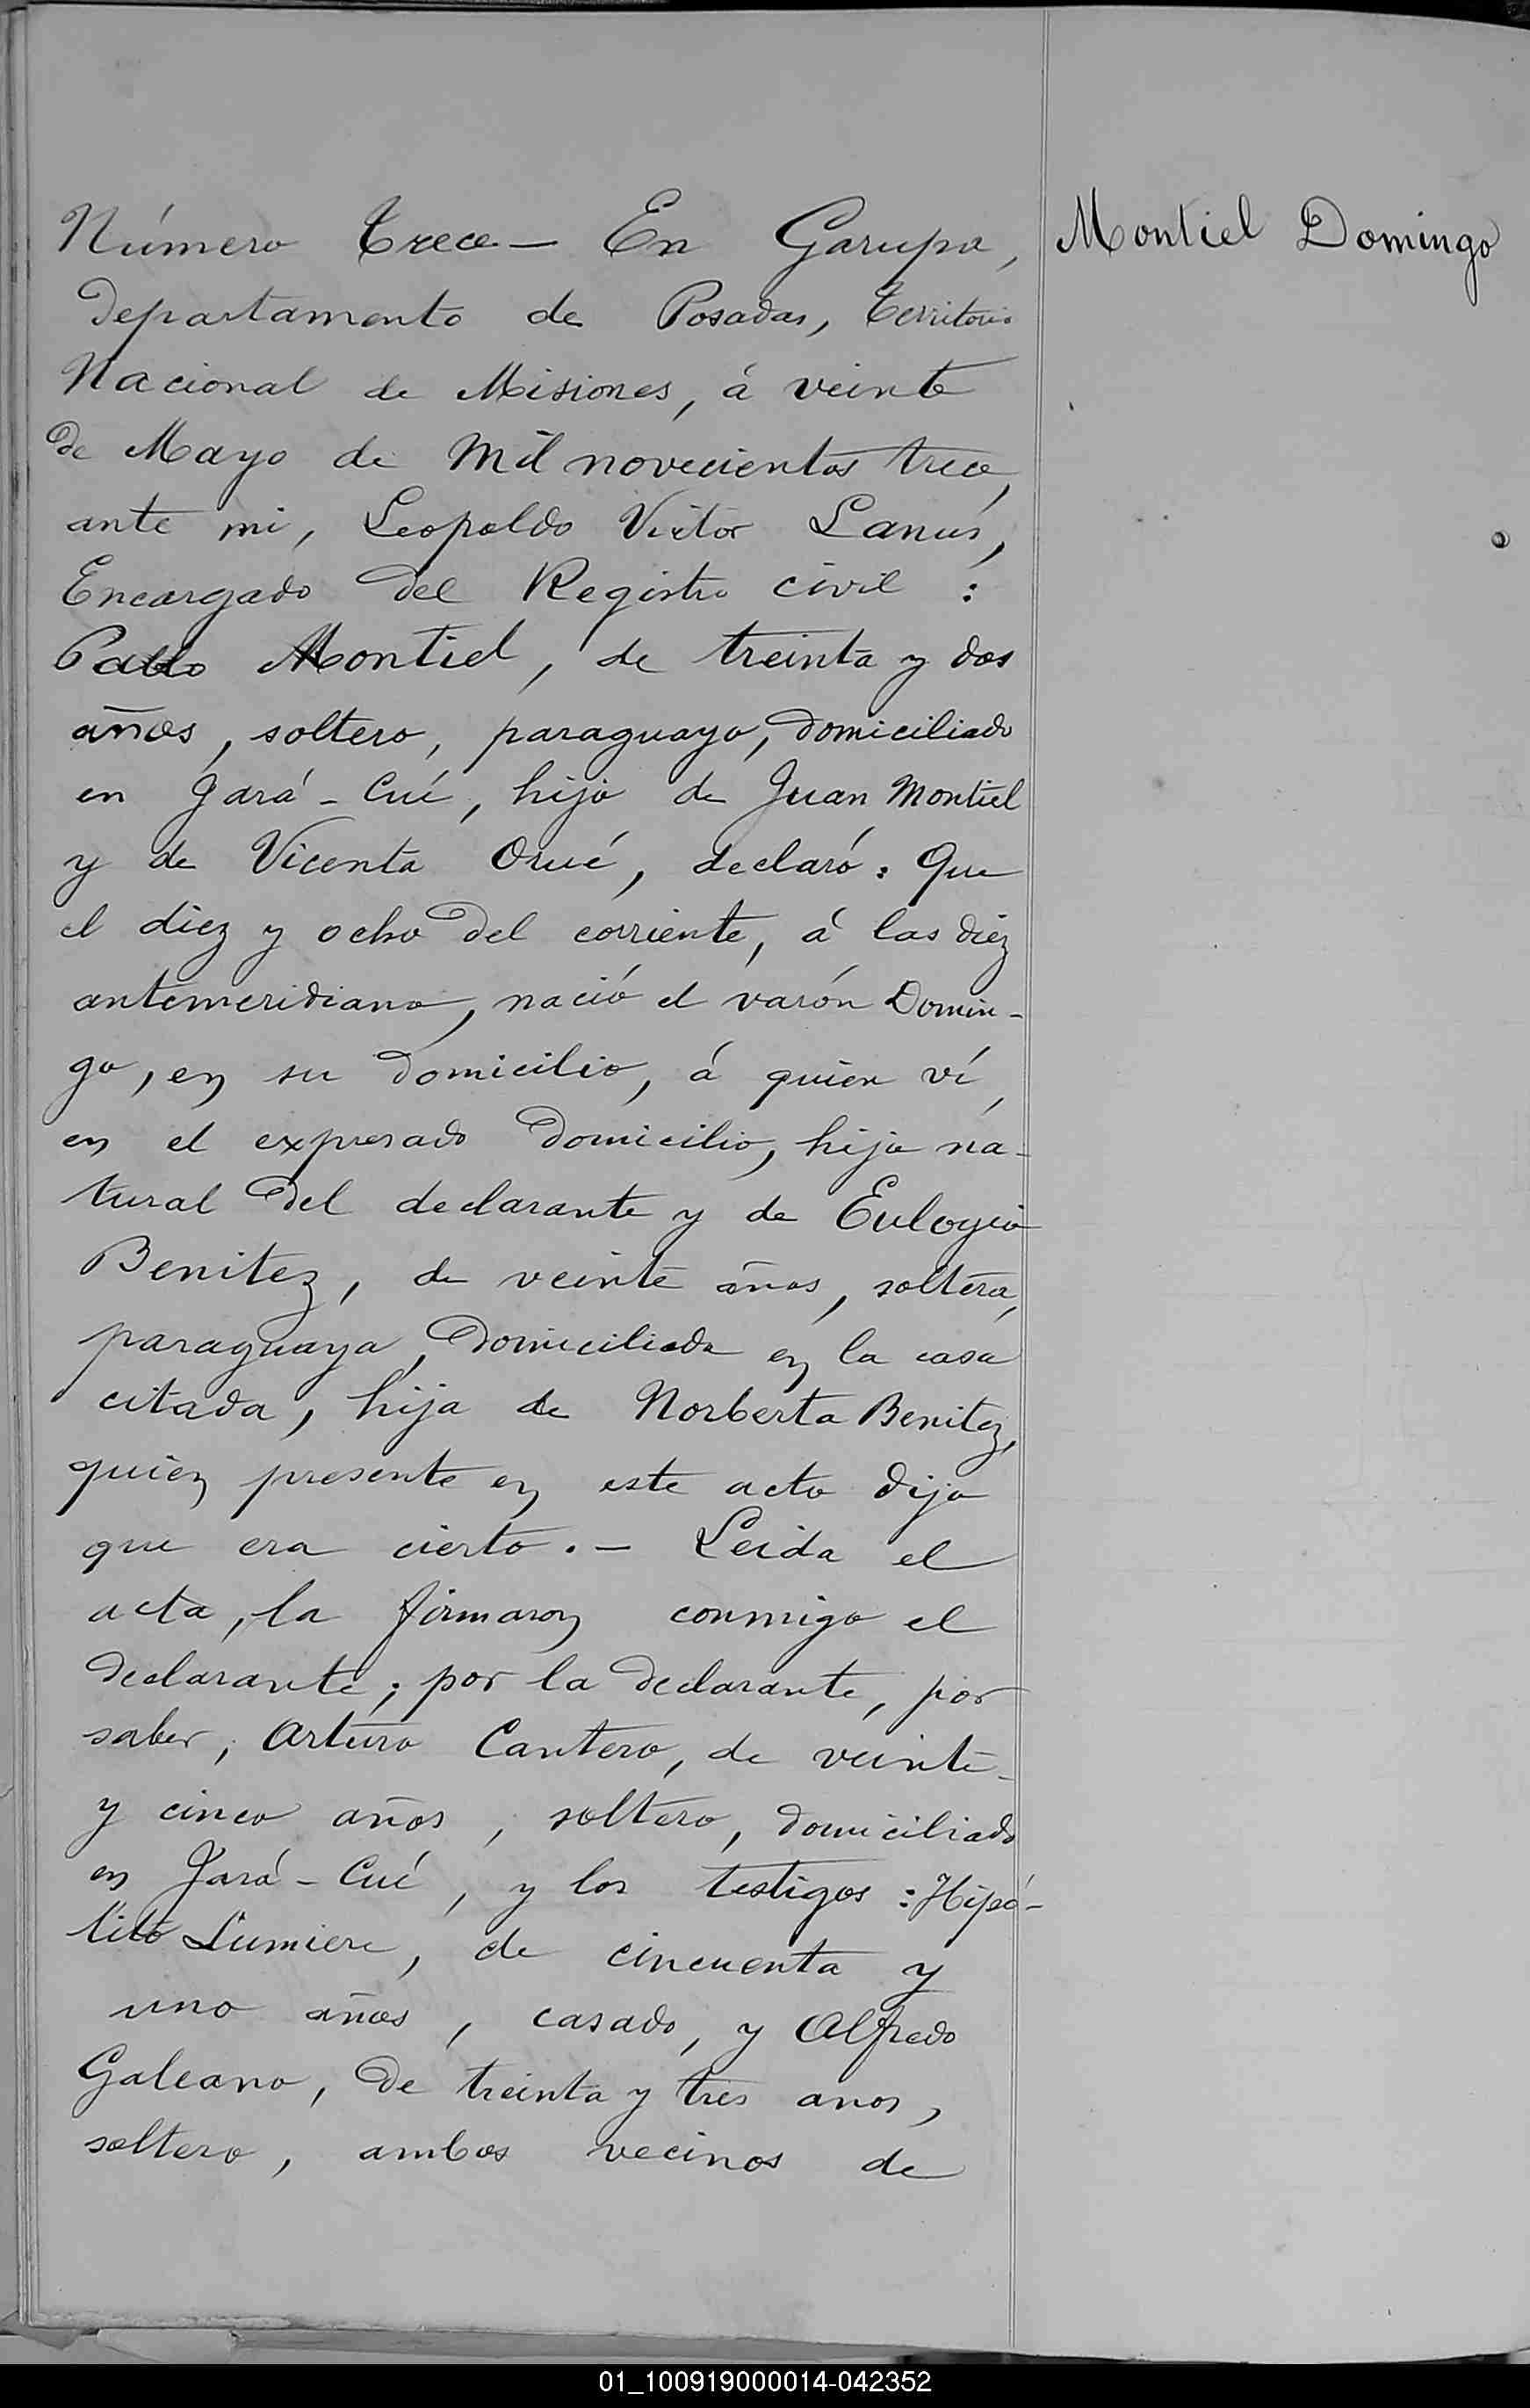 Número trece — En Garupa,
Montiel Domingo
departamento de Posadas, territorio
Nacional de Misiones, á veinte
de Mayo de mil novecientos trece,
ante mi, Leopoldo Victor Lanús,
Encargado del Registro civil :
Pablo Montiel, de treinta y dos
años, soltero, paraguayo, domiciliado
en Jará-Cué, hijo de Juan Montiel
y de Vicenta Orué, declaró: Que
el diez y ocho del corriente, á las diez
antemeridiano, nació el varón Domin-
go, en su domicilio, á quien ví,
en el expresado domicilio, hijo na-
tural del declarante y de Eulogia
Benitez, de veinte años, soltera,
paraguaya, domiciliada en la casa
citada, hija de Norberta Benitez,
quien presente en este acto dijo
que era cierto. — Leida el
acta, la firmaron conmigo el
declarante; por la declarante, por
saber, Arturo Cantero, de veinte-
y cinco años, soltero, domiciliado
en Jará-Cué, y los testigos: Hipó-
lito Lumiere, de cincuenta y
uno años, casado, y Alfredo
Galeano, de treinta y tres anos,
soltero, ambos vecinos de
01_100919000014-042352